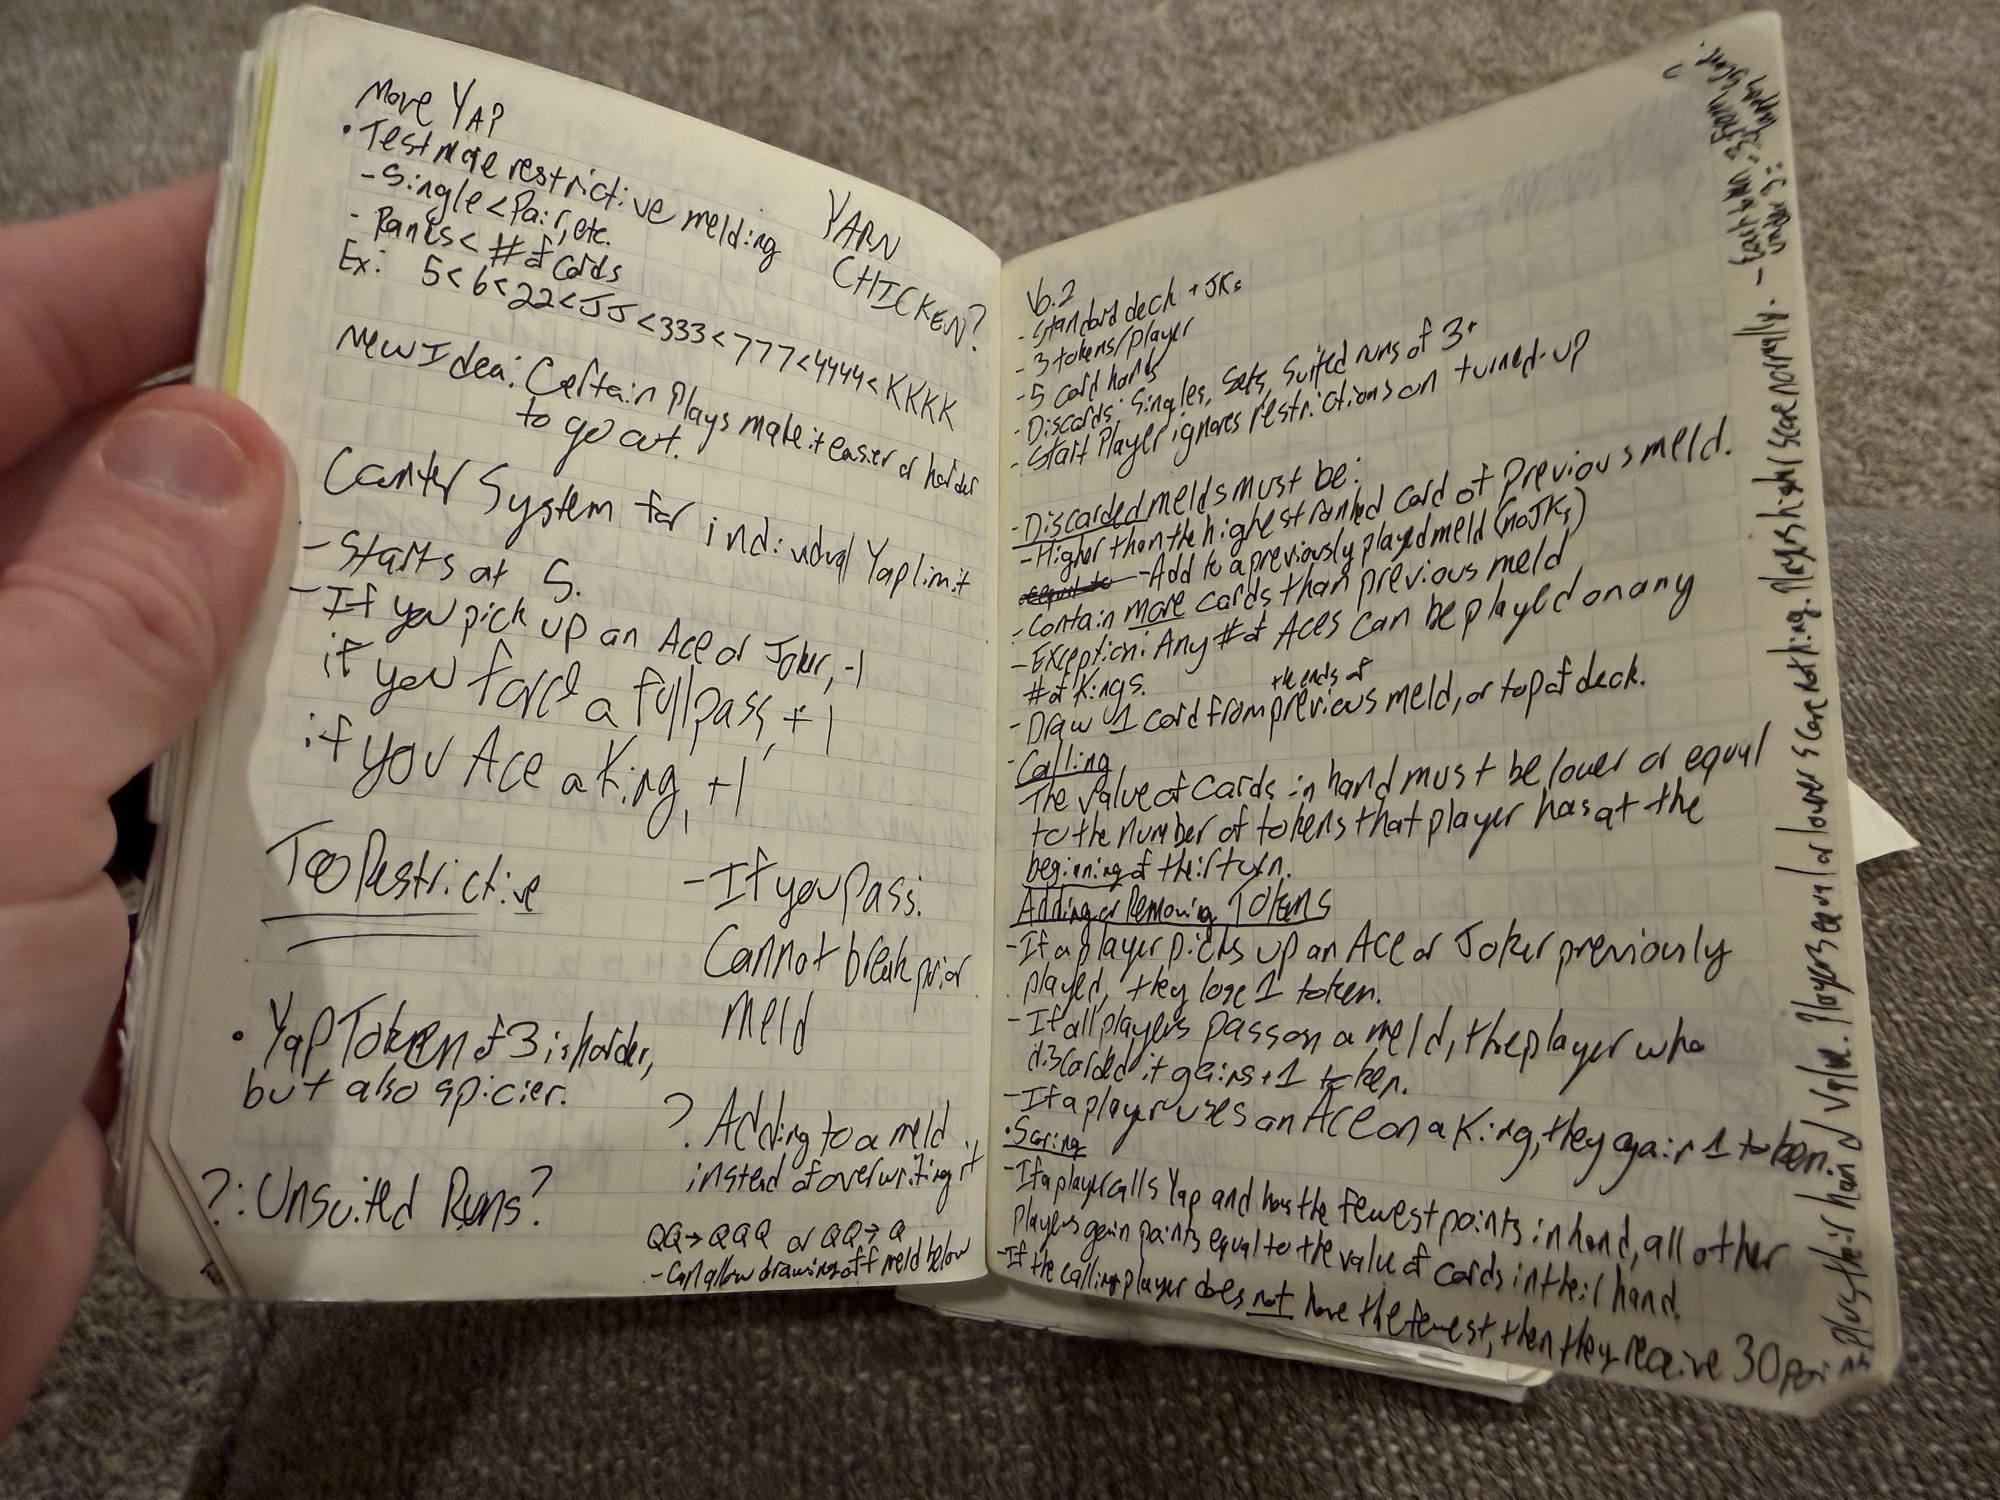 More YAP
• Test more restrictive melding
- Single < Pair, etc.
- Ranks < # of Cards
Ex: 5 < 6 < 22 < JJ < 333 < 777 < 4444 < KKKK
YARN
CHICKEN?
New Idea: Certain Plays make it easier or harder
to go out.
Counter System for individual Yap limit
- Starts at 5.
- If you pick up an Ace or Joker, -1
if you force a full pass, +1
if you Ace a King, +1
Too Restrictive
- If you Pass:
Cannot break prior
meld
• Yap Token of 3 is harder,
but also spicier.
? Adding to a meld
instead of overwriting it
QQ → QQQ or QQ → Q
- Can allow drawing off meld below
?: Unsuited Runs?
V6.2
- Standard deck + JKs
- 3 tokens/player
- 5 card hands
- Discards: Singles, Sets, Suited runs of 3+
- Start Player ignores restrictions on turned-up
- Discarded melds must be:
- Higher than the highest ranked card of previous meld.
- Add to a previously played meld (no JKs)
- Contain more cards than previous meld
- Exception: Any # of Aces can be played on any
# of Kings.
the ends of
- Draw 1 card from previous meld, or top of deck.
- Calling
The value of cards in hand must be lower or equal
to the number of tokens that player has at the
beginning of their turn.
Adding or Removing Tokens
- If a player picks up an Ace or Joker previously
played, they lose 1 token.
- If all players pass on a meld, the player who
discarded it gains +1 token.
- If a player uses an Ace on a King, they gain 1 token.
• Scoring
- If a player calls Yap and has the fewest points in hand, all other
players gain points equal to the value of cards in their hand.
- If the calling player does not have the fewest, then they receive 30 points
plus their hand value. Players equal or lower score nothing. Players higher score normally.